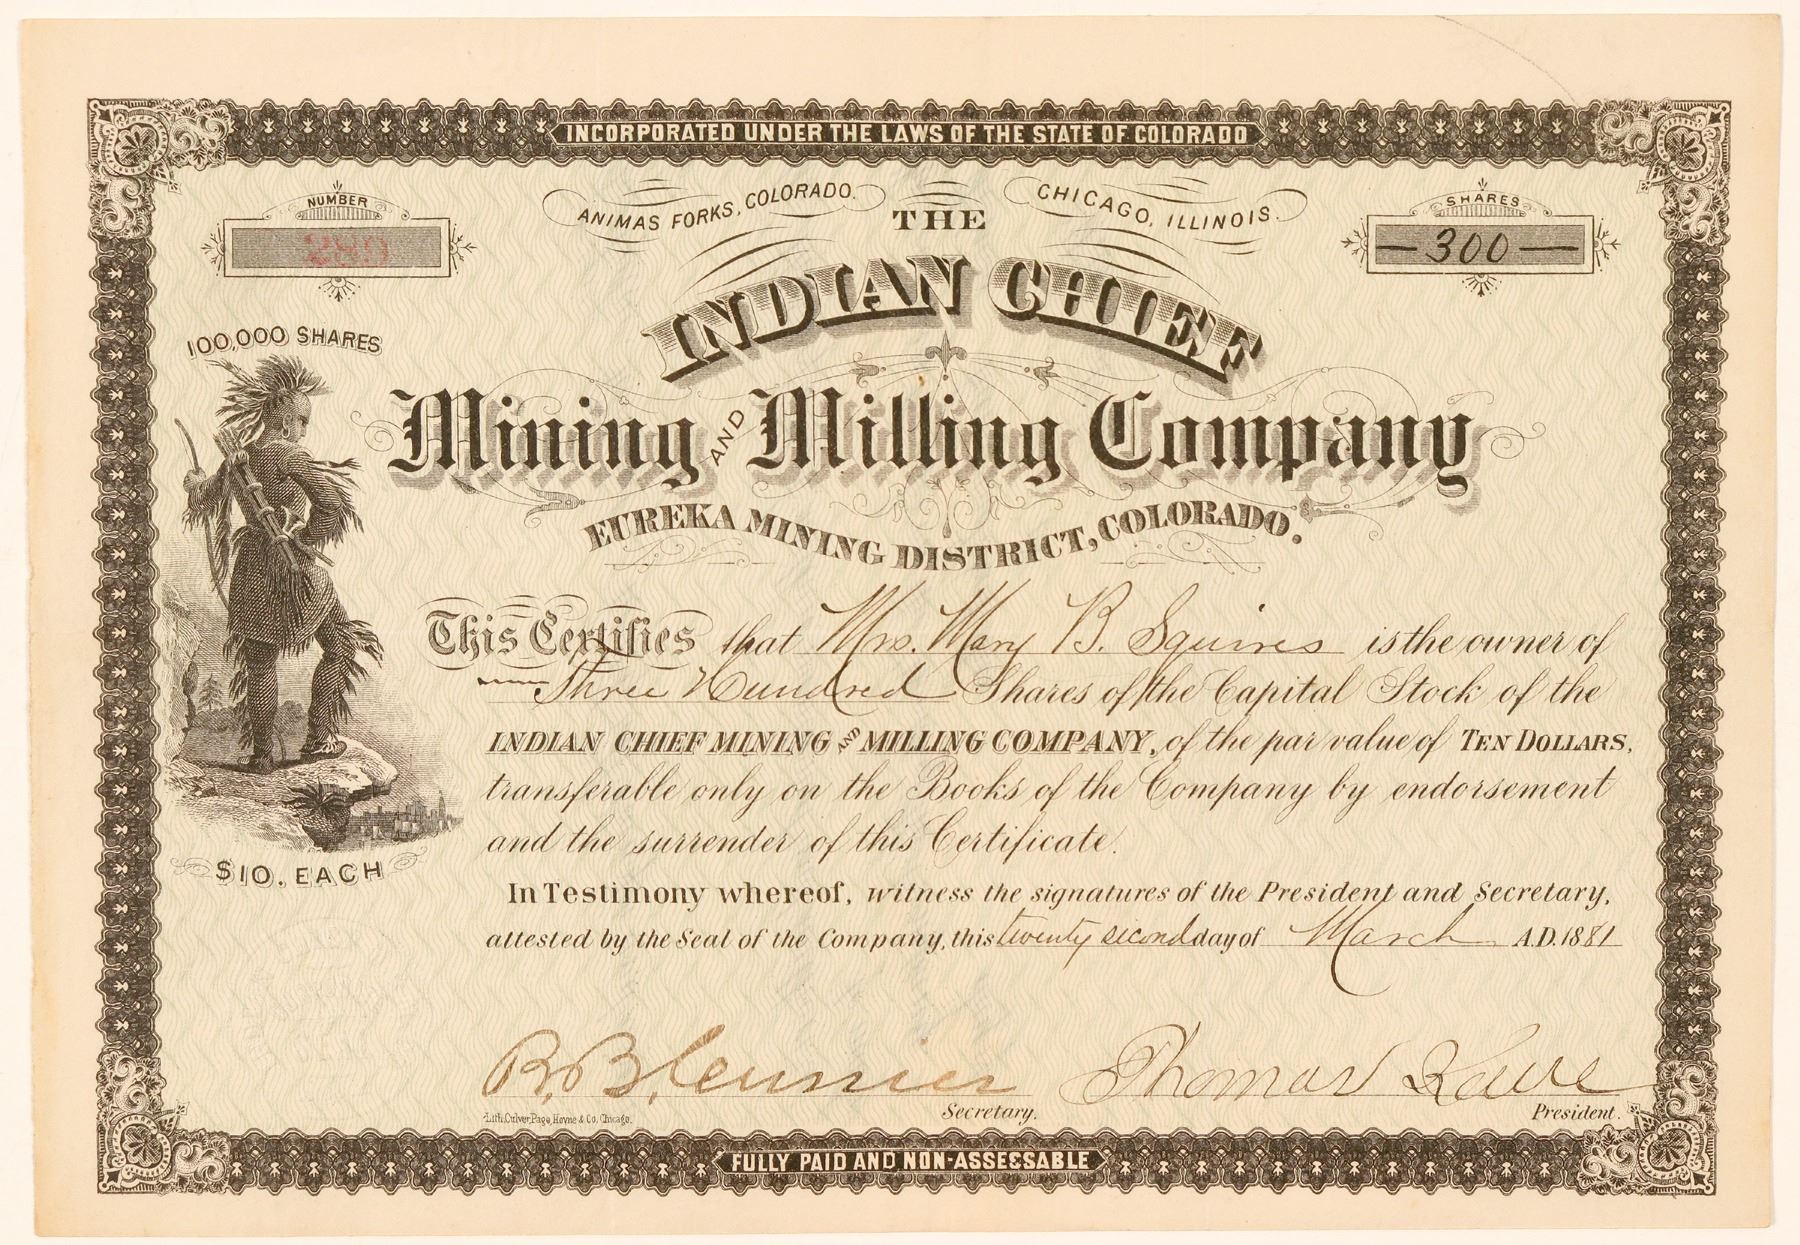 INCORPORATED UNDER THE LAWS OF THE STATE OF COLORADO
NUMBER
SHARES
300
ANIMAS FORKS, COLORADO.
CHICAGO, ILLINOIS.
THE
INDIAN CHIEF
100,000 SHARES
Mining AND Milling Company
EUREKA MINING DISTRICT, COLORADO.
This Certifies that Mrs. Mary B. Squires is the owner of
Three Hundred Shares of the Capital Stock of the
INDIAN CHIEF MINING AND MILLING COMPANY, of the par value of TEN DOLLARS,
transferable only on the Books of the Company by endorsement
and the surrender of this Certificate.
$10. EACH
In Testimony whereof, witness the signatures of the President and Secretary,
attested by the Seal of the Company, this twenty second day of March A.D. 1881
R. B. Thomas
Secretary.
President.
Lith. Culver, Page, Hoyne & Co. Chicago.
FULLY PAID AND NON-ASSESSABLE